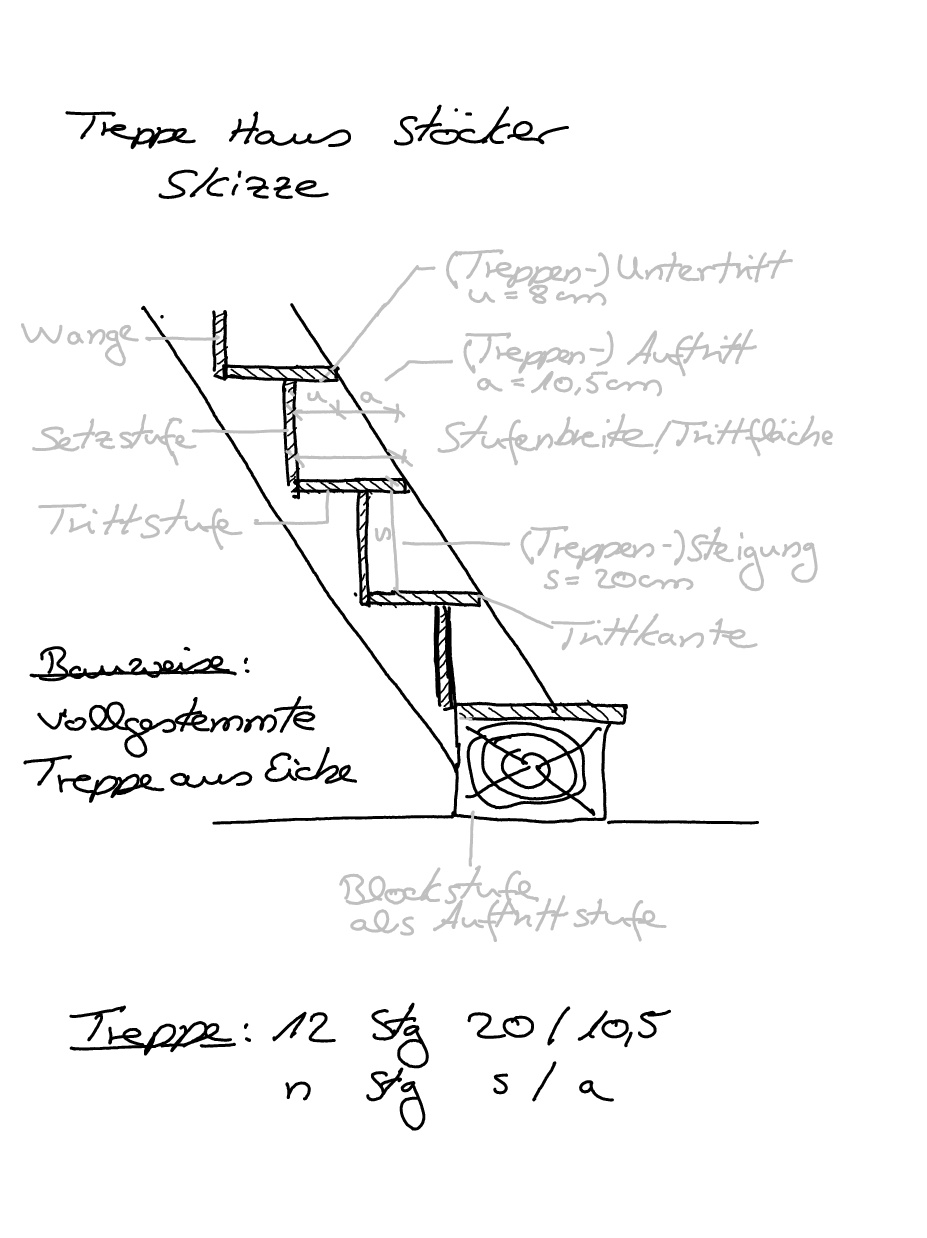 Treppe Haus Stöcker
Skizze
(Treppen-) Untertritt
u = 8 cm
Wange
(Treppen-) Auftritt
a = 10,5 cm
u a
Setzstufe
Stufenbreite/Trittfläche
Trittstufe
s
(Treppen-) Steigung
s = 20 cm
Trittkante
Bauweise:
vollgestemmte
Treppe aus Eiche
Blockstufe
als Auftrittstufe
Treppe: 12 Stg 20 / 10,5
n Stg s / a